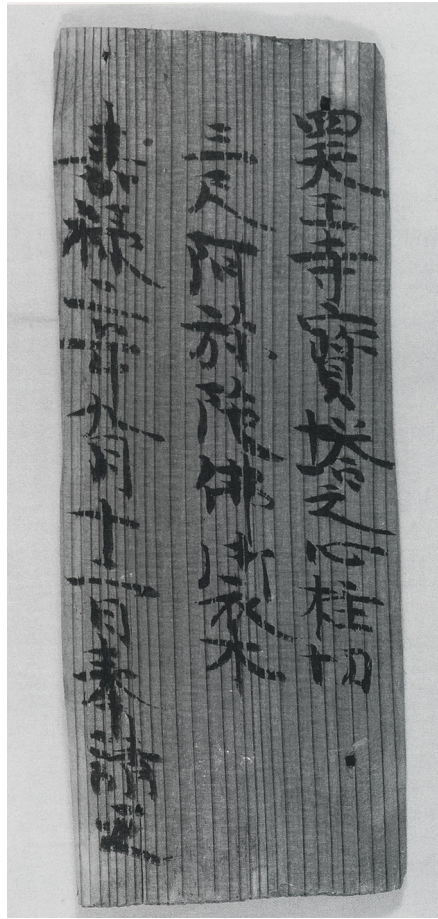 四天王寺寶塔之心柱切
三尺阿弥陀佛御衣木
嘉禄三年九月十二日奉請之